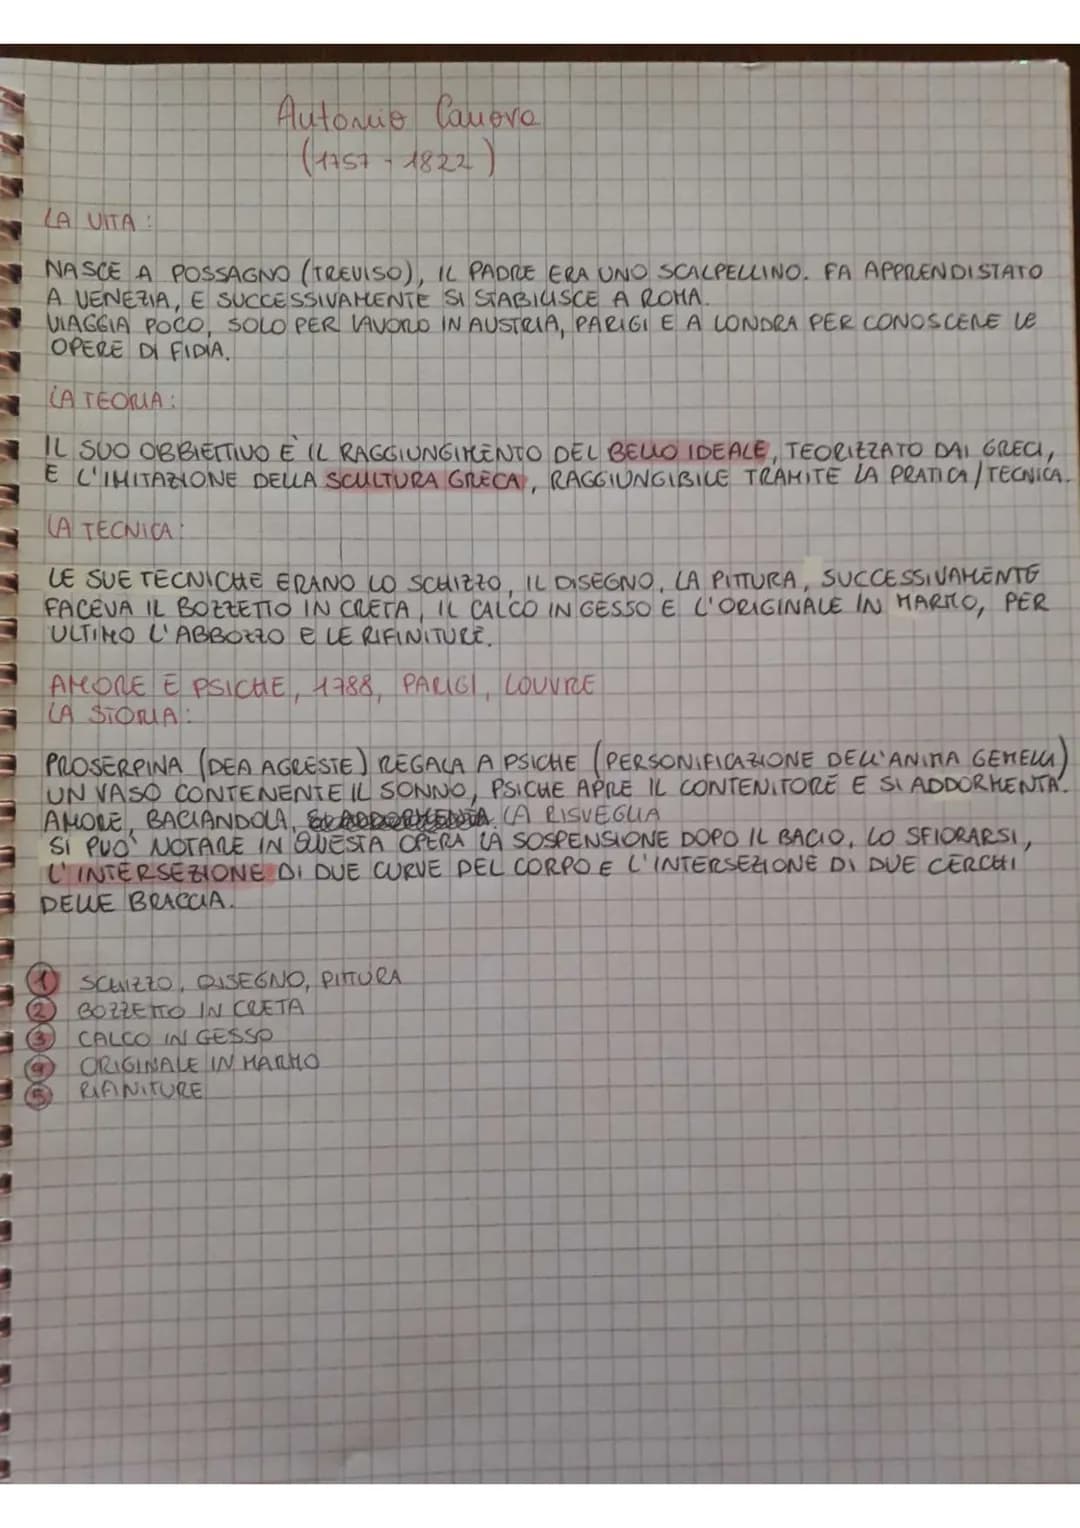 Antonio Canova
(1757 - 1822)
LA VITA:
NASCE A POSSAGNO (TREVISO), IL PADRE ERA UNO SCALPELLINO. FA APPRENDISTATO
A VENEZIA, E SUCCESSIVAMENTE SI STABILISCE A ROMA.
VIAGGIA POCO, SOLO PER LAVORO IN AUSTRIA, PARIGI E A LONDRA PER CONOSCERE LE
OPERE DI FIDIA.
LA TEORIA:
IL SUO OBBIETTIVO È IL RAGGIUNGIMENTO DEL BELLO IDEALE, TEORIZZATO DAI GRECI,
E L'IMITAZIONE DELLA SCULTURA GRECA, RAGGIUNGIBILE TRAMITE LA PRATICA/TECNICA.
LA TECNICA:
LE SUE TECNICHE ERANO LO SCHIZZO, IL DISEGNO, LA PITTURA, SUCCESSIVAMENTE
FACEVA IL BOZZETTO IN CRETA, IL CALCO IN GESSO E L'ORIGINALE IN MARMO, PER
ULTIMO L'ABBOZZO E LE RIFINITURE.
AMORE E PSICHE, 1788, PARIGI, LOUVRE
LA STORIA:
PROSERPINA (DEA AGRESTE) REGALA A PSICHE (PERSONIFICAZIONE DELL'ANIMA GEMELLA)
UN VASO CONTENENTE IL SONNO, PSICHE APRE IL CONTENITORE E SI ADDORMENTA.
AMORE, BACIANDOLA, LA RISVEGLIA
SI PUO' NOTARE IN QUESTA OPERA LA SOSPENSIONE DOPO IL BACIO, LO SFIORARSI,
L'INTERSEZIONE DI DUE CURVE DEL CORPO E L'INTERSEZIONE DI DUE CERCHI
DELLE BRACCIA.
1 SCHIZZO, DISEGNO, PITTURA
2 BOZZETTO IN CRETA
3 CALCO IN GESSO
4 ORIGINALE IN MARMO
5 RIFINITURE